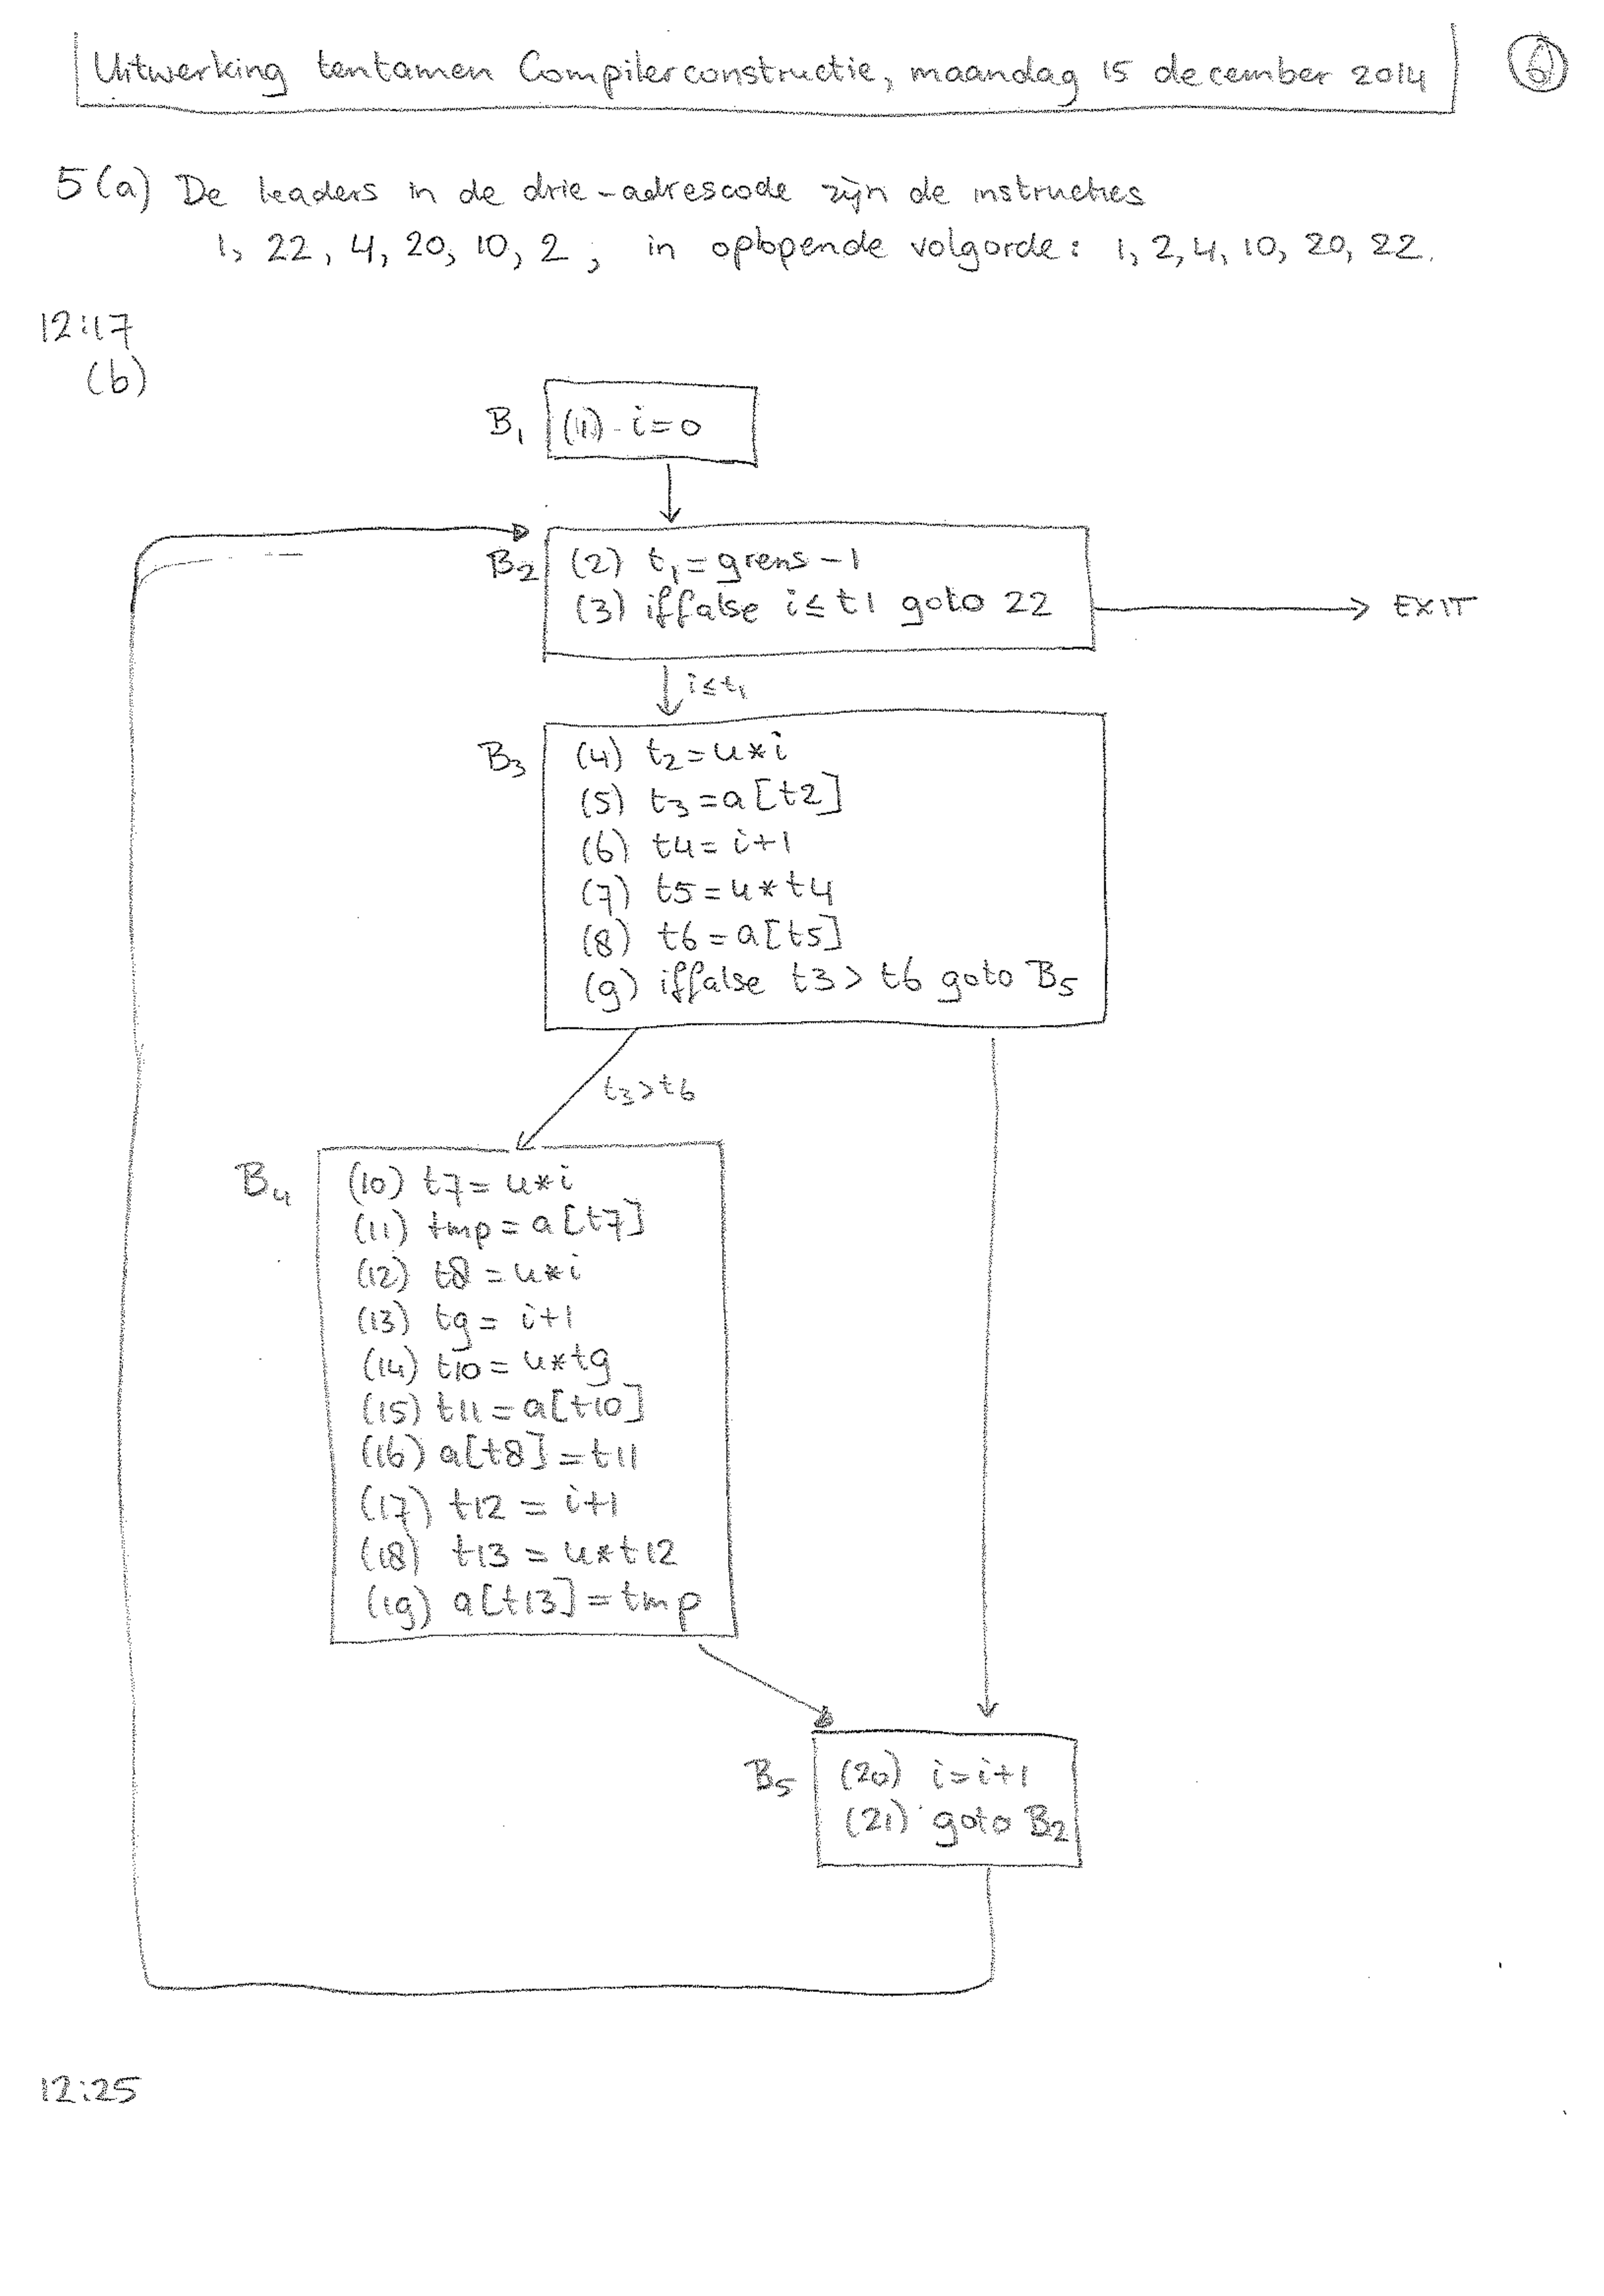 Uitwerking tentamen Compilerconstructie, maandag 15 december 2014 6
5(a) De leaders in de drie-adrescode zijn de instructies
1, 22, 4, 20, 10, 2, in oplopende volgorde: 1, 2, 4, 10, 20, 22.
12:17
(b)
B1 (1) i=0
B2 (2) t1=grens-1
(3) iffalse i≤t1 goto 22 EXIT
i≤t1
B3 (4) t2=4*i
(5) t3=a[t2]
(6) t4=i+1
(7) t5=4*t4
(8) t6=a[t5]
(9) iffalse t3>t6 goto B5
t3>t6
B4 (10) t7=4*i
(11) tmp=a[t7]
(12) t8=4*i
(13) t9=i+1
(14) t10=4*t9
(15) t11=a[t10]
(16) a[t8]=t11
(17) t12=i+1
(18) t13=4*t12
(19) a[t13]=tmp
B5 (20) i=i+1
(21) goto B2
12:25